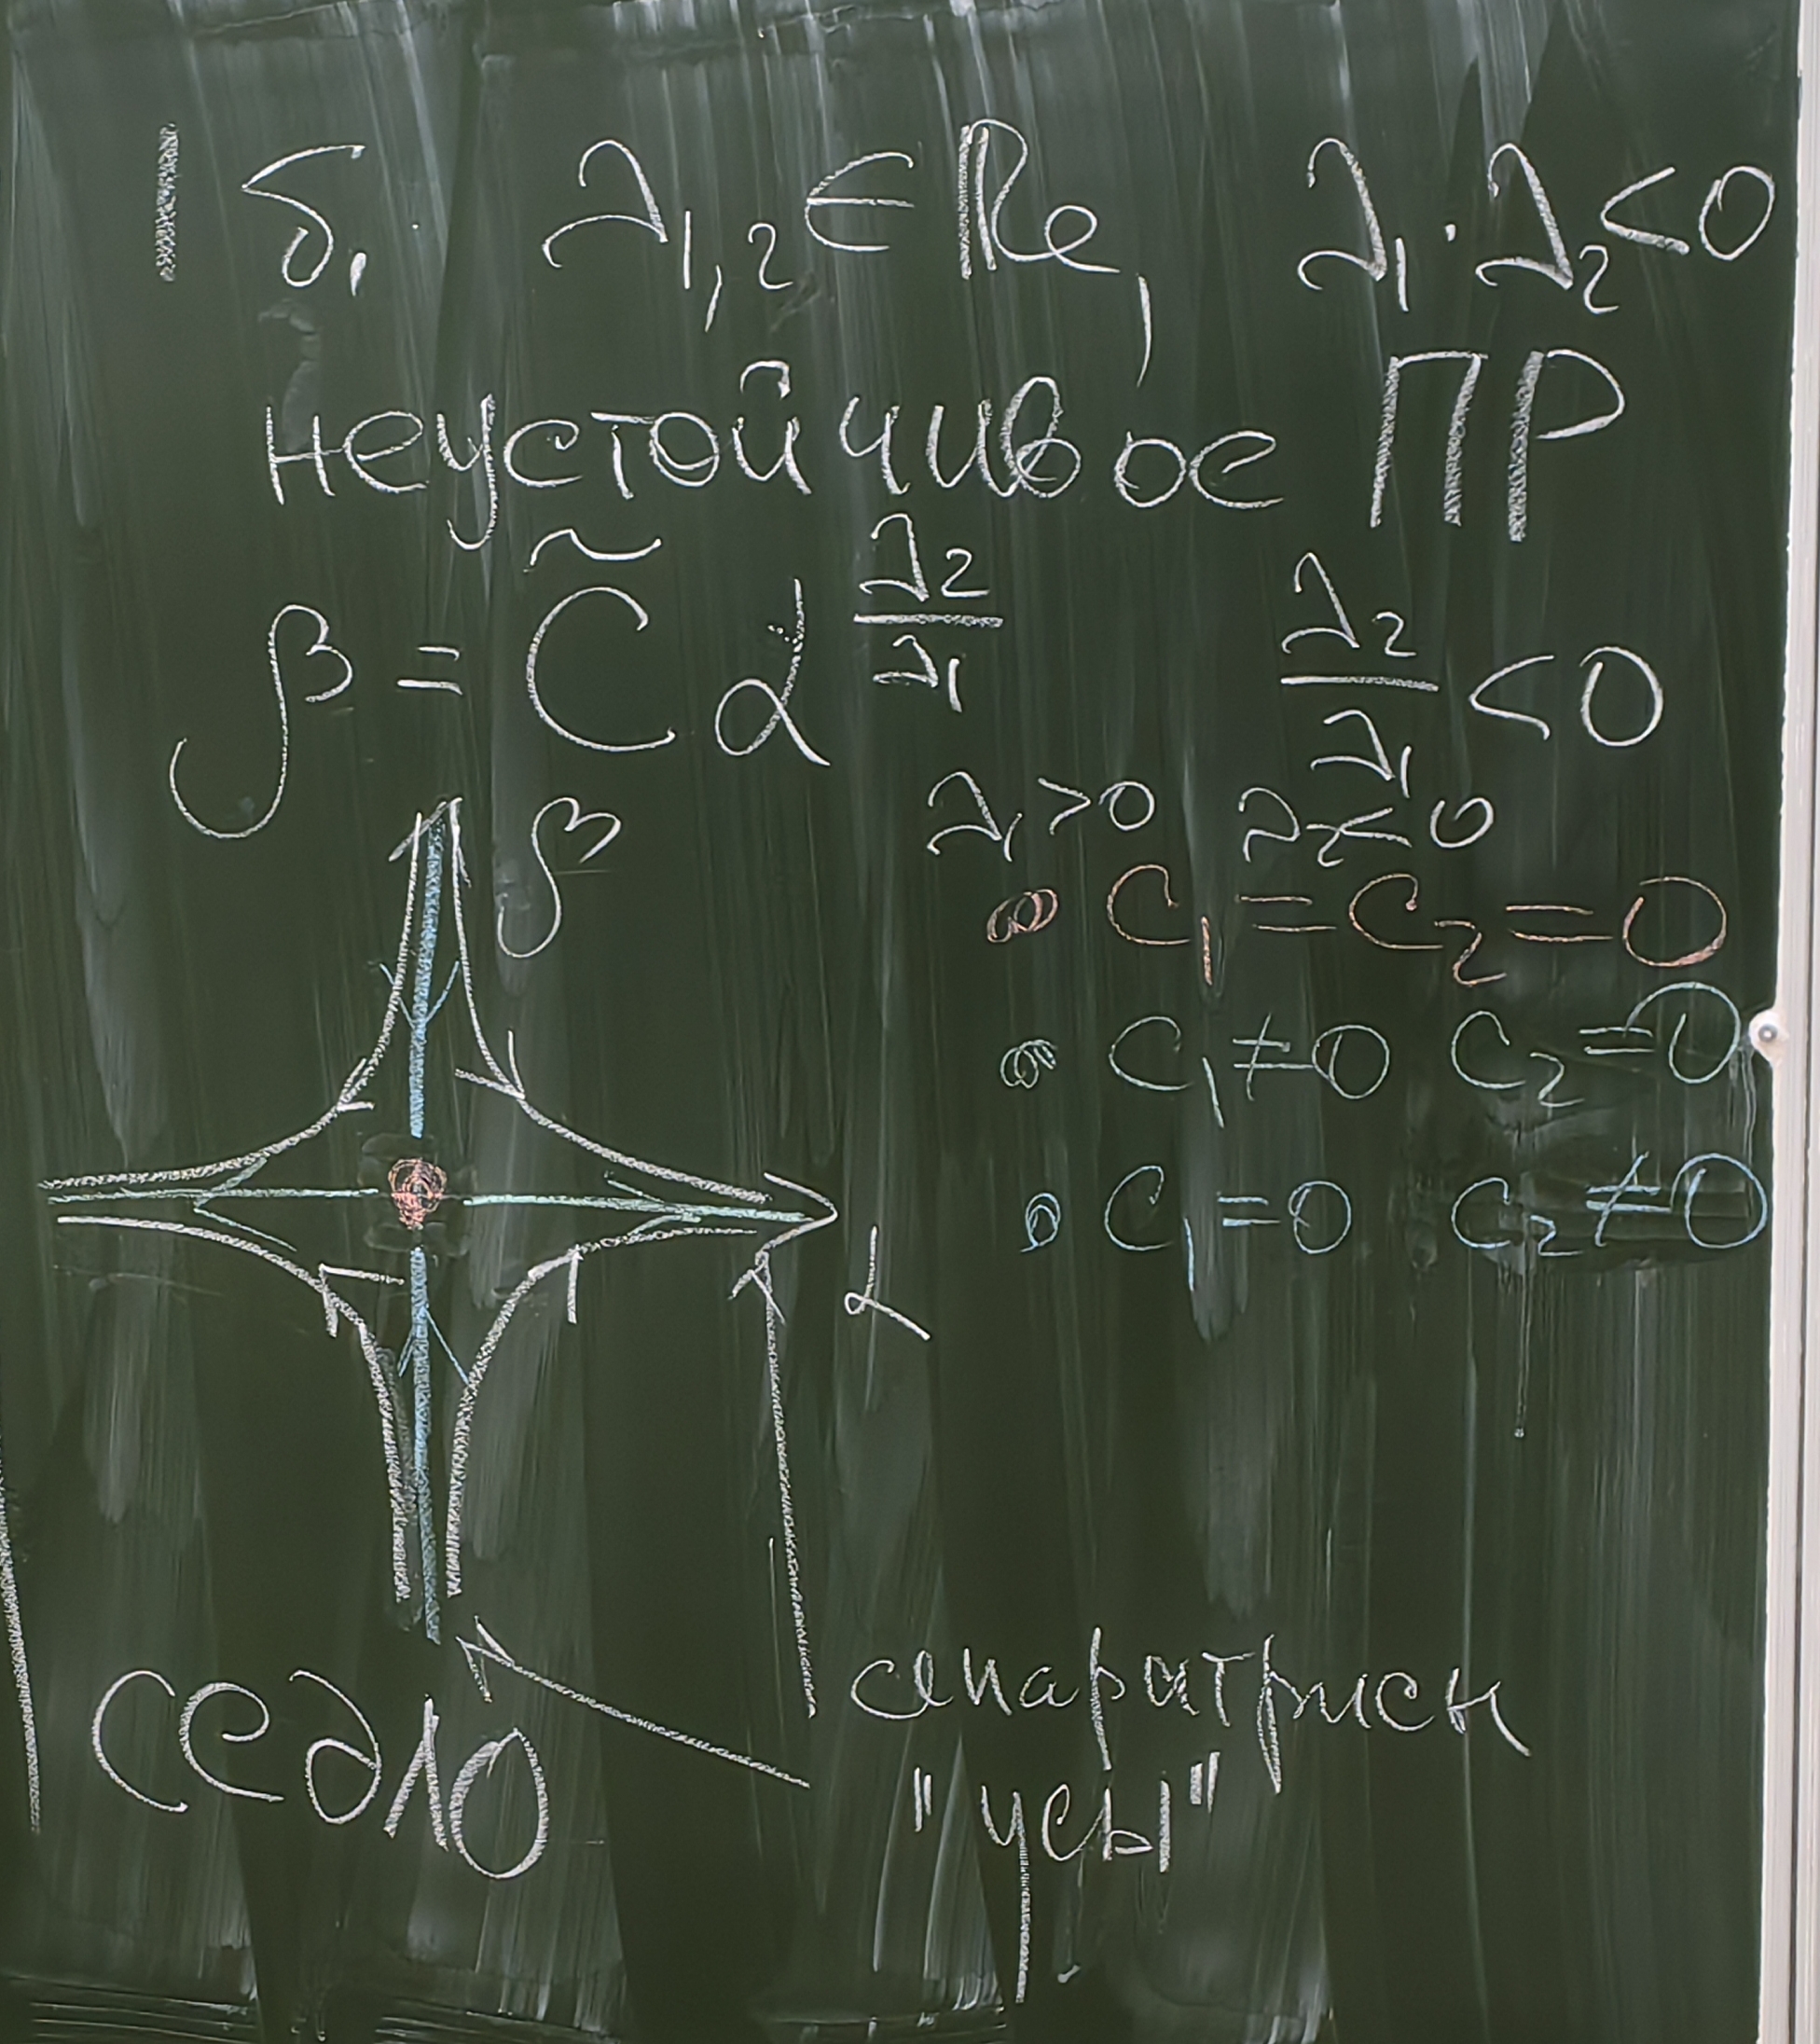 1 б. λ₁,₂ ∈ Re, λ₁·λ₂<0
неустойчивое ПР
β = C̃ α^(λ₂/λ₁) λ₂/λ₁ <0
λ₁>0 λ₂<0
β
C₁=C₂=0
C₁≠0 C₂=0
C₁=0 C₂≠0
α
седло
сепаратрисы
"усы"